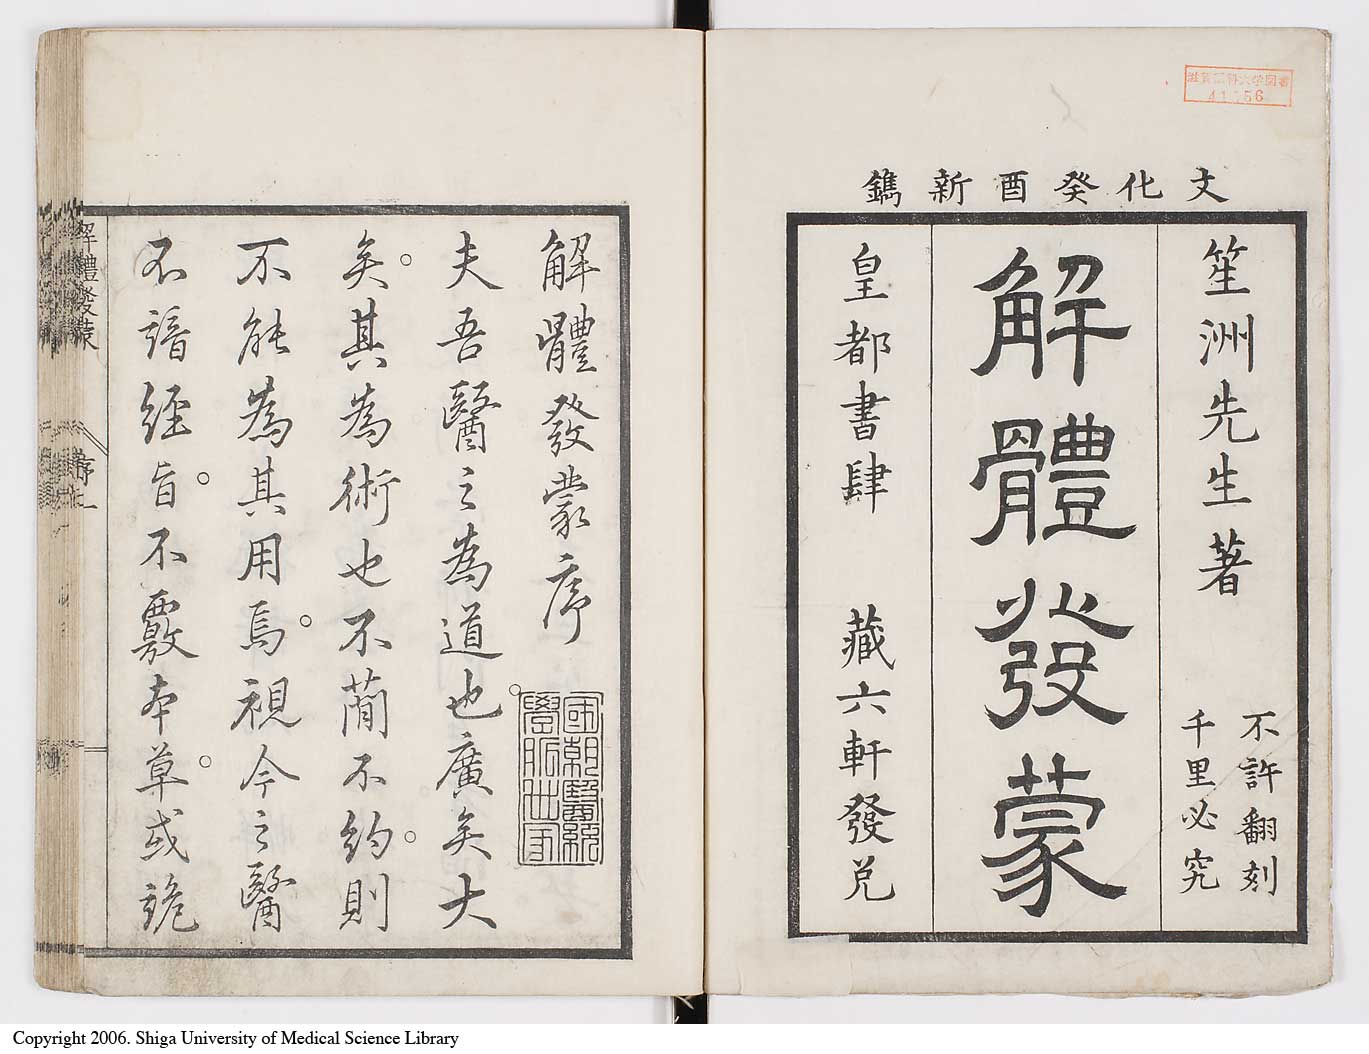 文化癸酉新鐫
笙洲先生著
不許翻刻
千里必究
解體發蒙
皇都書肆 藏六軒發兌
解體發蒙序
夫吾醫之為道也。廣矣大
矣。其為術也不蕳不約。則
不能為其用焉。視今之醫
不諳經旨。不覈本草。或詭
國朝醫統
學脈世家
解體發蒙
序
滋賀医科大学図書
Copyright 2006. Shiga University of Medical Science Library